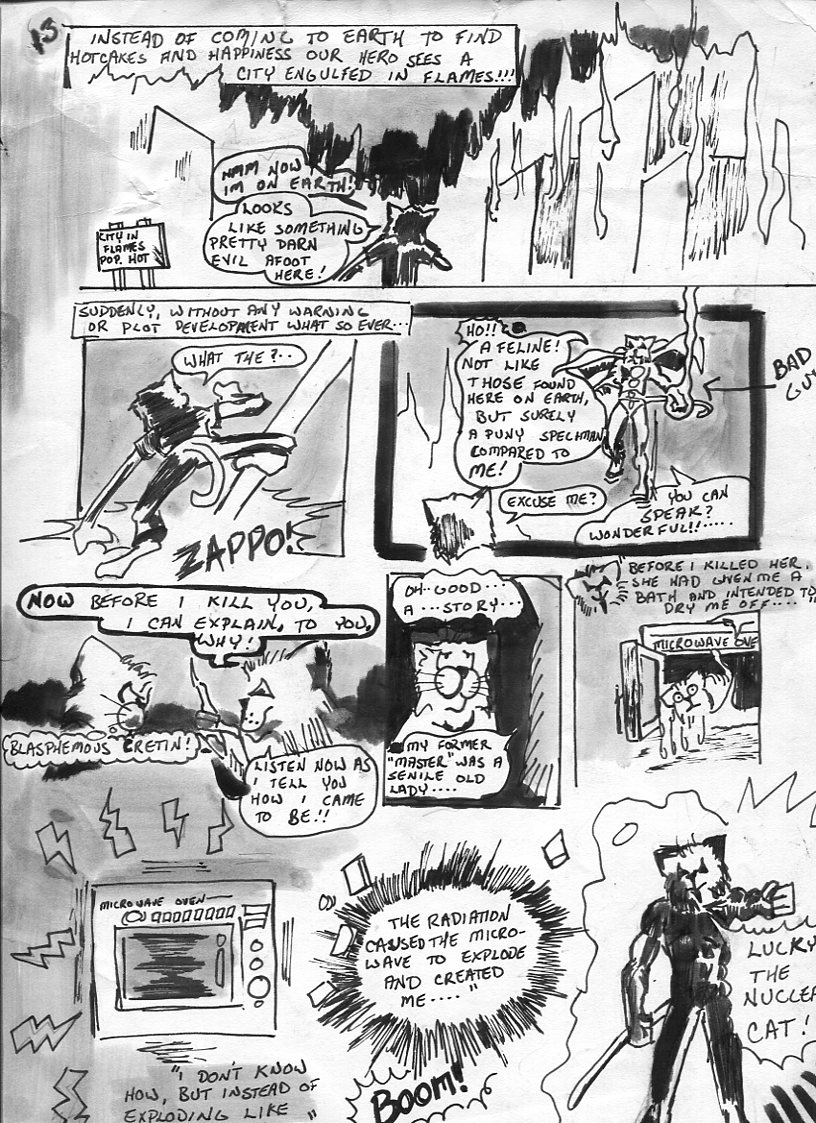 13
INSTEAD OF COMING TO EARTH TO FIND
HOTCAKES AND HAPPINESS OUR HERO SEES A
CITY ENGULFED IN FLAMES!!!
HMM NOW
IM ON EARTH!
LOOKS
LIKE SOMETHING
PRETTY DARN
EVIL AFOOT
HERE!
CITY IN
FLAMES
POP. HOT
SUDDENLY, WITHOUT ANY WARNING
OR PLOT DEVELOPMENT WHAT SO EVER...
WHAT THE?..
ZAPPO!
HO!!
A FELINE!
NOT LIKE
THOSE FOUND
HERE ON EARTH,
BUT SURELY
A PUNY SPECIMAN
COMPARED TO
ME!
BAD
GUY
EXCUSE ME?
YOU CAN
SPEAK?
WONDERFUL!!.....
NOW BEFORE I KILL YOU,
I CAN EXPLAIN, TO YOU,
WHY!
BLASPHEMOUS CRETIN!
LISTEN NOW AS
I TELL YOU
HOW I CAME
TO BE.!!
OH..GOOD...
A...STORY...
MY FORMER
"MASTER" WAS A
SENILE OLD
LADY....
"BEFORE I KILLED HER,
SHE HAD GIVEN ME A
BATH AND INTENDED TO
DRY ME OFF...."
MICROWAVE OVE
MICROWAVE OVEN
"I DON'T KNOW
HOW, BUT INSTEAD OF
EXPLODING LIKE "
THE RADIATION
CAUSED THE MICRO-
WAVE TO EXPLODE
AND CREATED
ME...."
BOOM!
LUCKY
THE
NUCLEA
CAT!